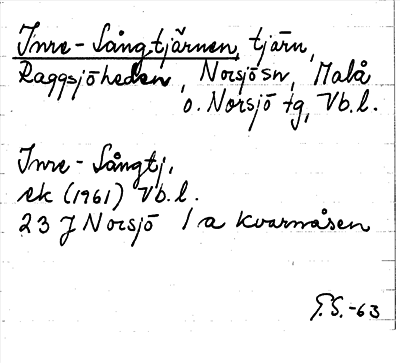 Inre-Långtjärnen, tjärn,
Raggsjöheden, Norsjö sn, Malå
o. Norsjö tg, Vb.l.
Inre-Långtj.
ek (1961) Vb.l.
23 J Norsjö 1 a Kvarnåsen
G.S.-63